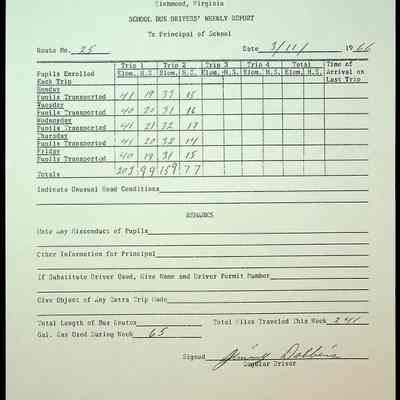 Richmond, Virginia
SCHOOL BUS DRIVERS' WEEKLY REPORT
To Principal of School
Route No. 25 Date 3/11/ 1966
Trip 1 Trip 2 Trip 3 Trip 4 Total Time of
Pupils Enrolled Elem. H.S. Elem. H.S. Elem. H.S. Elem. H.S. Elem. H.S. Arrival on
Each Trip Last Trip
Monday
Pupils Transported 41 19 33 15
Tuesday
Pupils Transported 40 20 31 16
Wednesday
Pupils Transported 41 21 32 17
Thursday
Pupils Transported 41 20 32 14
Friday
Pupils Transported 40 19 31 15
Totals 203 99 159 77
Indicate Unusual Road Conditions
REMARKS
Note Any Misconduct of Pupils
Other Information for Principal
If Substitute Driver Used, Give Name and Driver Permit Number
Give Object of Any Extra Trip Made
Total Length of Bus Routes Total Miles Traveled This Week 241
Gal. Gas Used During Week 65
Signed Jimmy Dobbins
Regular Driver